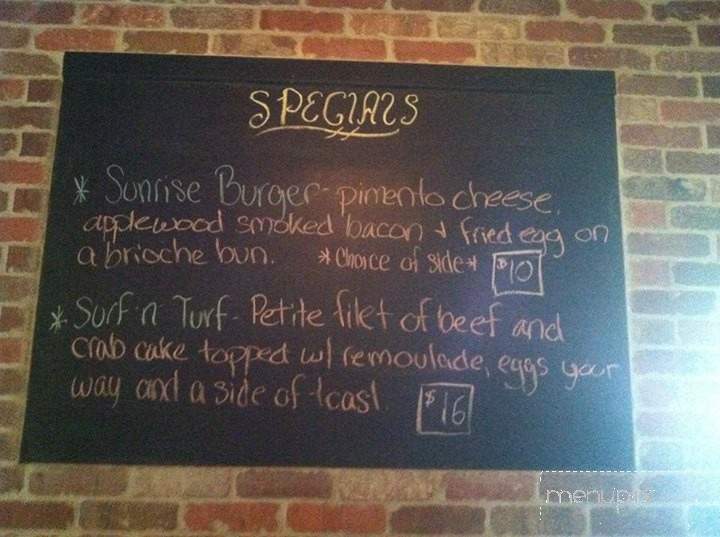 SPECIALS
* Sunrise Burger - pimento cheese,
applewood smoked bacon + fried egg on
a brioche bun. *Choice of side* $10
* Surf n Turf - Petite filet of beef and
crab cake topped w/ remoulade, eggs your
way and a side of toast. $16
menupix